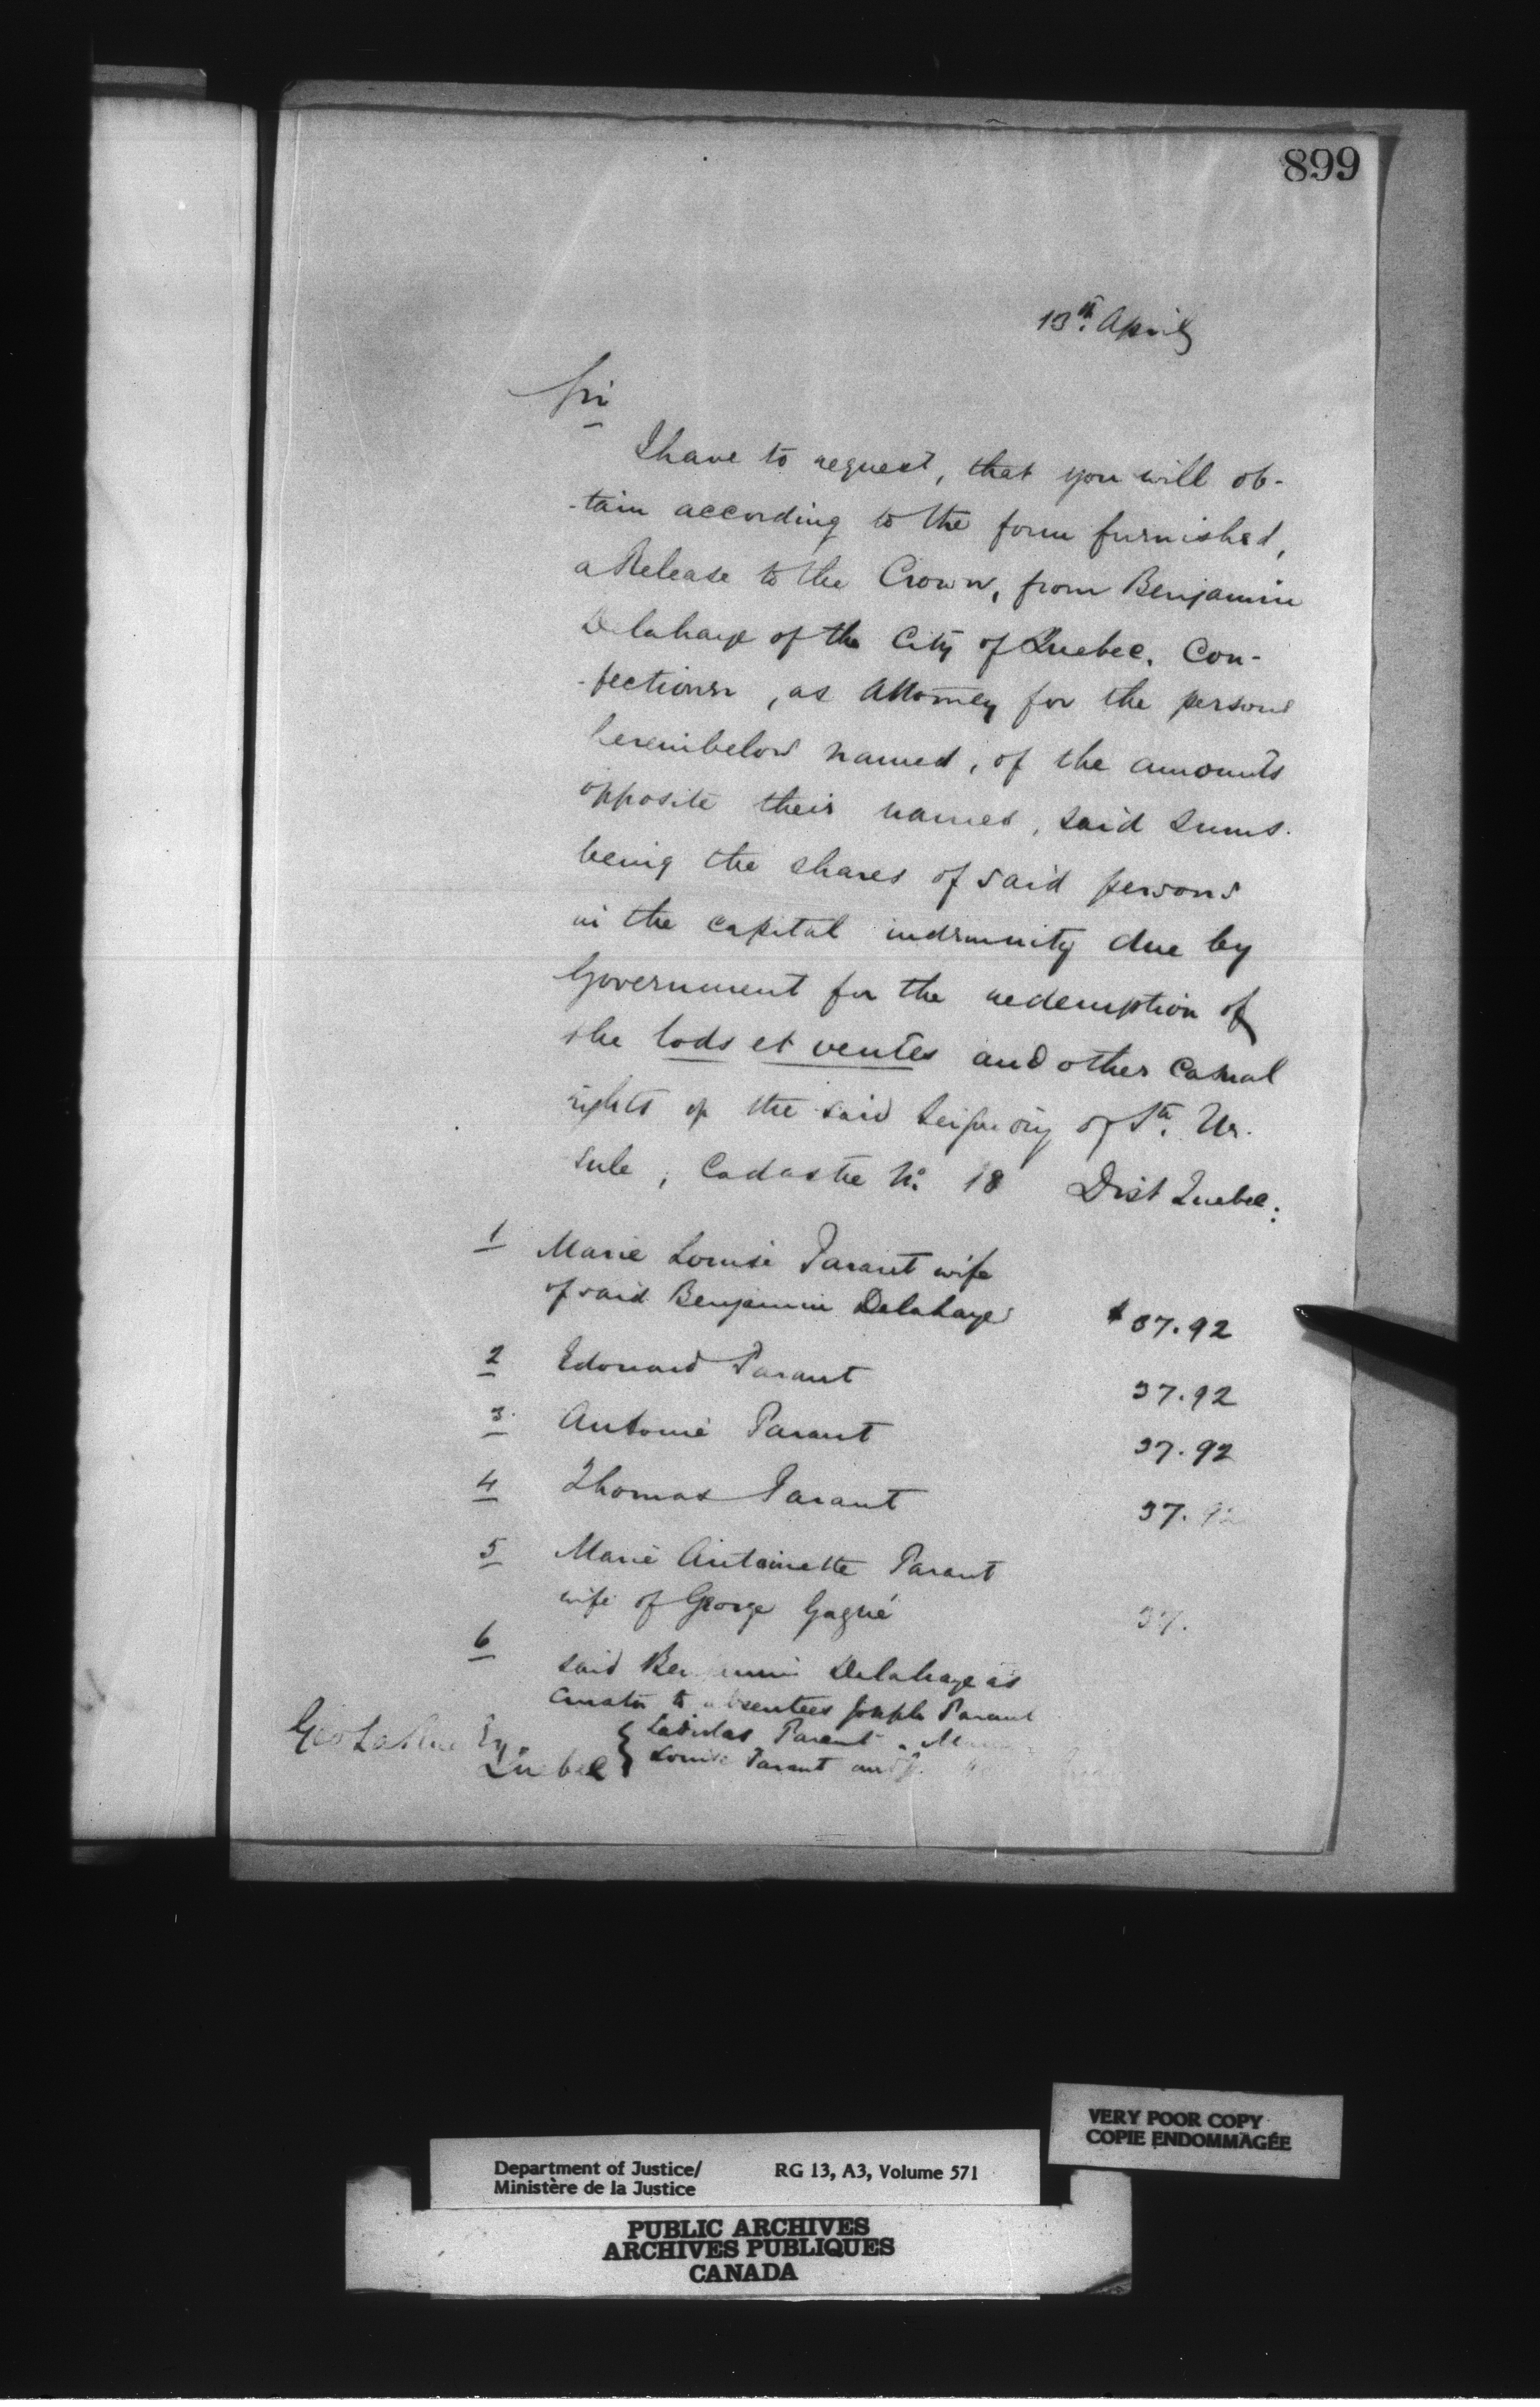 899
13th. April
Sir
I have to request, that you will ob-
-tain according to the form furnished,
a Release to the Crown, from Benjamin
Delahaye of the City of Quebec. Con-
-fectioner, as Attorney for the persons
hereinbelow named, of the amounts
opposite their names, said sums
being the shares of said persons
in the capital indemnity due by
Government for the redemption of
the lods et ventes and other casual
rights of the said Seigniory of Ste. Ur-
sule, Cadastre No. 18 Dist Quebec.
1 Marie Louise Parant wife
of said Benjamin Delahaye $37.92
2 Edouard Parant 37.92
3 Antoine Parant 37.92
4 Thomas Parant 37.92
5 Marie Antoinette Parant
wife of George Gagné 37.
6 said Benjamin Delahaye as
Curator to absentees Joseph Parant
Ladislas Parent
Louise Parant and
Geo Esq.
Quebec
VERY POOR COPY
COPIE ENDOMMAGÉE
Department of Justice/
Ministère de la Justice
RG 13, A3, Volume 571
PUBLIC ARCHIVES
ARCHIVES PUBLIQUES
CANADA